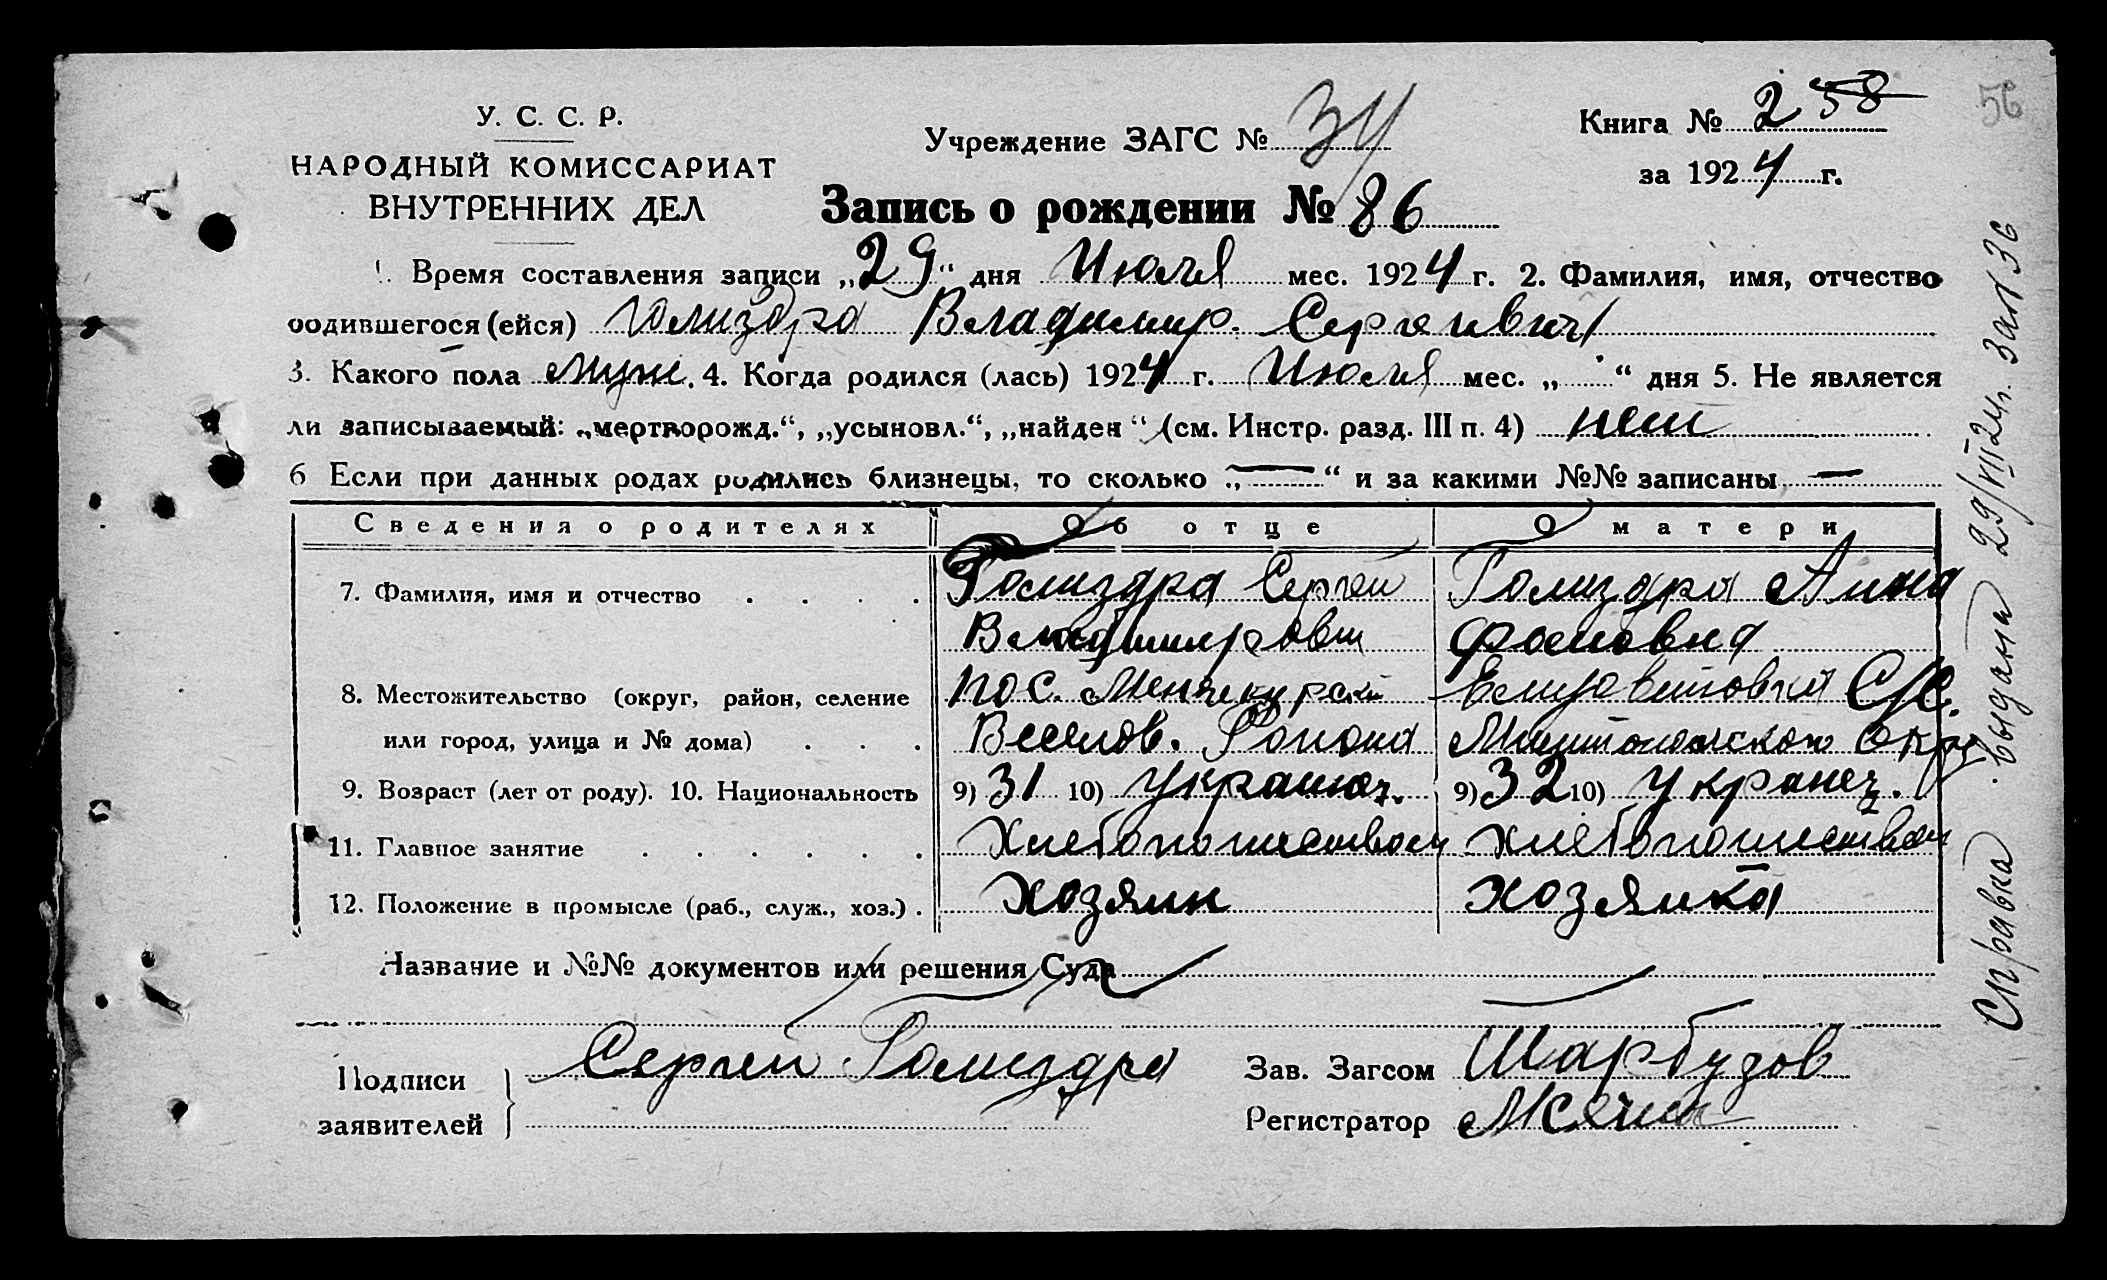 У. С. С. Р.
НАРОДНЫЙ КОМИССАРИАТ
ВНУТРЕННИХ ДЕЛ
Учреждение ЗАГС №
Книга № 2 58
за 1924 г.
56
Запись о рождении № 86
1. Время составления записи „29“ дня Июля мес. 1924 г. 2. Фамилия, имя, отчество
родившегося (ейся) Голиздра Владимир Сергеевич
3. Какого пола муж. 4. Когда родился (лась) 1924 г. Июля мес. „ “ дня 5. Не является
ли записываемый: „мертворожд.“, „усыновл.“, „найден“ (см. Инстр. разд. III п. 4) нет
6 Если при данных родах родились близнецы, то сколько „ — “ и за какими №№ записаны —
Сведения о родителях Об отце О матери
7. Фамилия, имя и отчество Голиздра Сергей Голиздра Анна
Владимирович Фомовна
8. Местожительство (округ, район, селение пос. Елизаветовка
или город, улица и № дома) Веселов. Района Мелитопольского Округ
9. Возраст (лет от роду). 10. Национальность 9) 31 10) Украинец. 9) 32 10) Украинец.
11. Главное занятие Хлебопашеством Хлебопашеством
12. Положение в промысле (раб., служ., хоз.) Хозяин Хозяйка
Название и №№ документов или решения Суда
Подписи
заявителей
Сергей Голиздра
Зав. Загсом Шарбузов
Регистратор
Справка выдана 29/VII 24г. За № 36